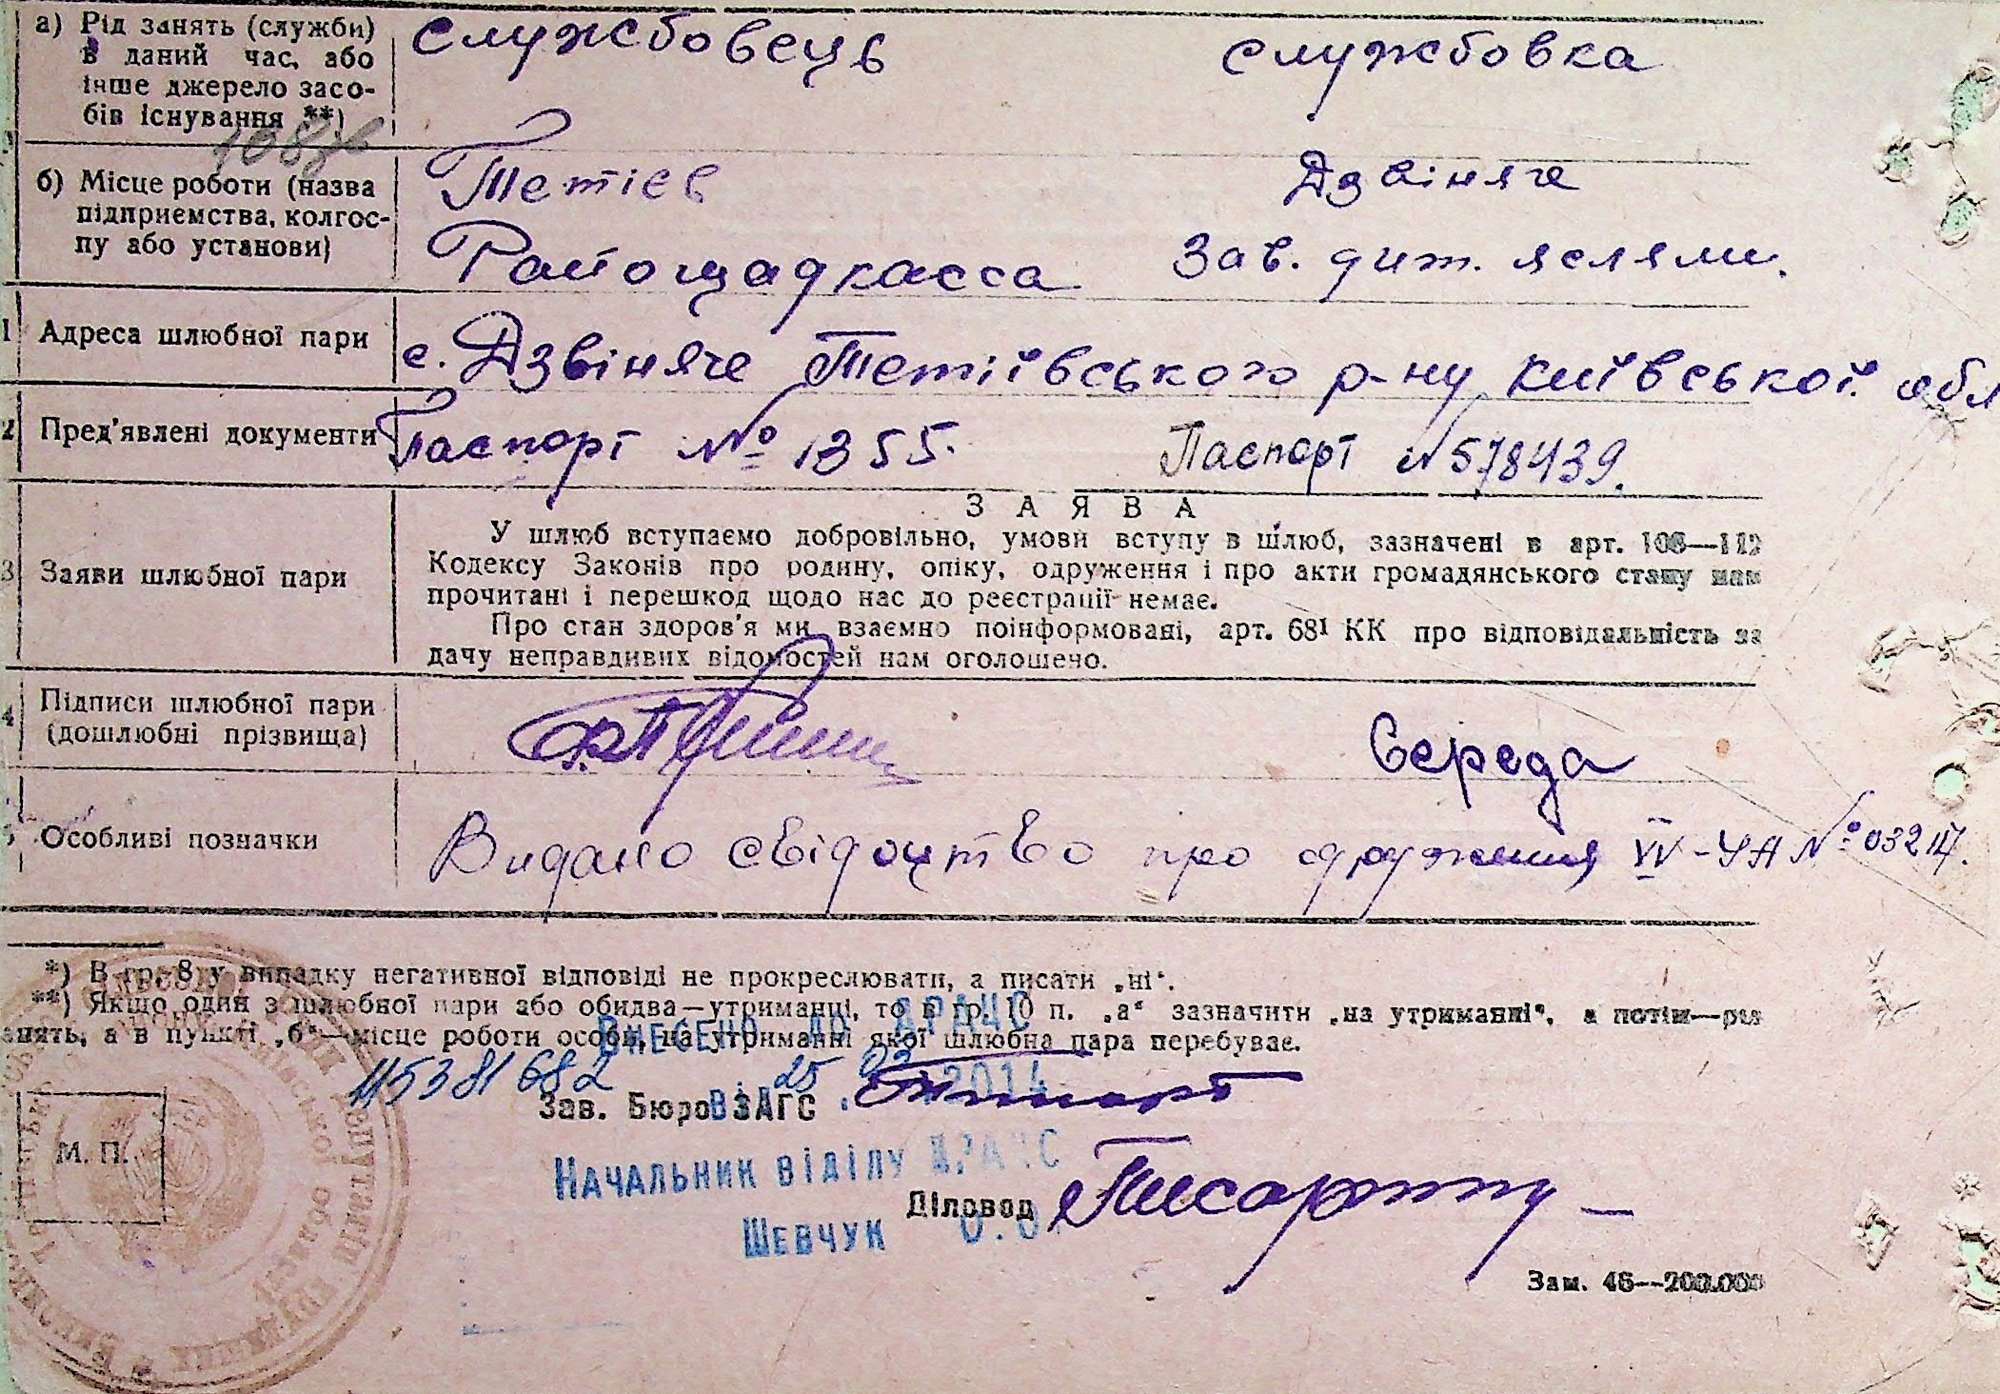 а) Рід занять (служби) в даний час, або інше джерело засобів існування **)
службовець
службовка
б) Місце роботи (назва підприємства, колгоспу або установи)
Тетієв
Дзвіняче
Райощадкасса
Зав. дит. яслями.
Адреса шлюбної пари
с. Дзвіняче Тетіївського р-ну Київської обл
Пред'явлені документи
Паспорт № 1355.
Паспорт № 578439.
ЗАЯВА
Заяви шлюбної пари
У шлюб вступаємо добровільно, умови вступу в шлюб, зазначені в арт. 108—112
Кодексу Законів про родину, опіку, одруження і про акти громадянського стану нам
прочитані і перешкод щодо нас до реєстрації немає.
Про стан здоров'я ми взаємно поінформовані, арт. 68¹ КК про відповідальність за
дачу неправдивих відомостей нам оголошено.
Підписи шлюбної пари
(дошлюбні прізвища)
Середа
Особливі позначки
Видано свідоцтво про одруження IV-УА № 03217.
*) В гр. 8 у випадку негативної відповіді не прокреслювати, а писати „ні“.
**) Якщо один з шлюбної пари або обидва—утриманці, то в гр. 10 п. „а“ зазначити „на утриманні“, а потім—рід
анять, а в пункті „б“—місце роботи особи, на утриманні якої шлюбна пара перебуває.
ВНЕСЕНО ДО ДРАЦС
115381682
від 25 03 2014
Зав. Бюро ЗАГС
М. П.
НАЧАЛЬНИК ВІДІЛУ ДРАЦС
Діловод
ШЕВЧУК О.О.
Зам. 46—200.000